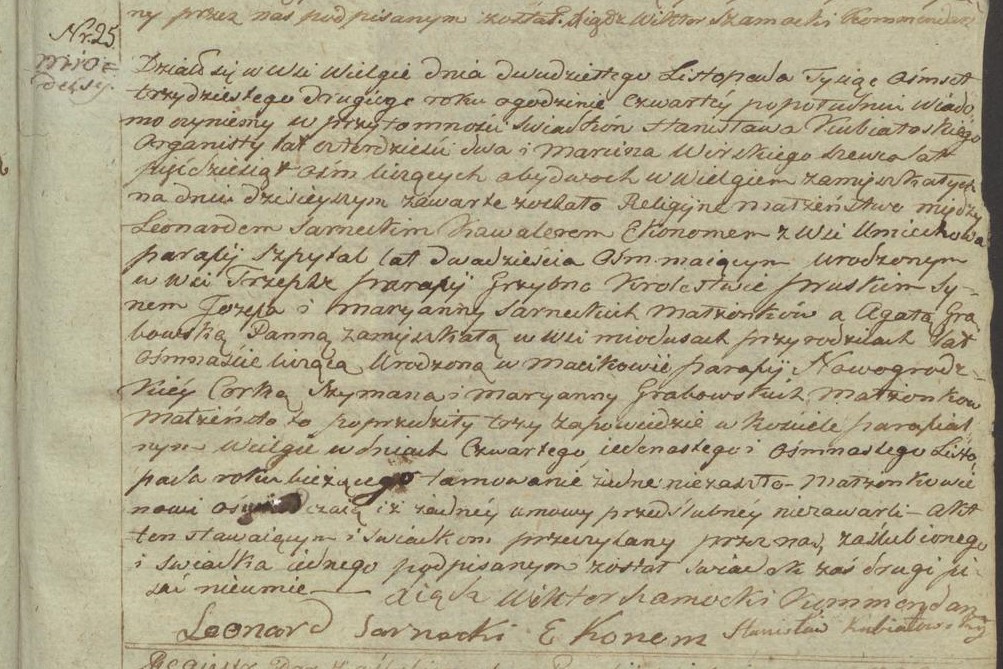 ny przez nas podpisanym został. Xiądz Wiktor Szamocki Kommendarz
Nr. 25.
Mio=
dusy.
Działo się w Wsi Wielgie dnia dwudziestego Listopada Tysiąc Ośmset
trzydziestego drugiego roku o godzinie czwartéy popołudniu wiado
mo czyniemy w przytomności świadków Stanisława Kubiatoskiego
Organisty lat czterdzieści dwa i Marcina Wirskiego szewca lat
pięćdziesiąt ośm liczących obydwoch w Wielgiem zamięszkałych
na dniu dzisieyszym zawarte zostało Religijne małżeństwo między
Leonardem Sarneckim Kawalerem Ekonomem z Wsi
parafij Szpytal lat dwadzieścia ośm maiącym urodzonym
w Wsi parafij Grzybno Krolestwie pruskim Sy-
nem Jozefa i Maryanny Sarneckich Małżonków a Agatą Gra
bowską Panną zamięszkałą w Wsi Miodusach przy rodzicach lat
ośmnaście liczącą Urodzoną w Macikowie parafij Nowogrodz-
kiéy Corką Szymana i Maryanny Grabowskich Małżonków
Małżeństo to poprzedziły trzy zapowiedzie w kościele parafial
nym Wielgie w dniach czwartego iedenastego i ośmnastego Listo
pada roku bieżącego tamowanie żadne niezaszło – Małżonkowie
nowi oświadczaią iż żadnéy umowy przedślubnéy niezawarli – akt
ten stawaiącym i świadkom przeczytany przez nas, zaślubionego
i świadka iednego podpisanym został świadek zaś drugi pi-
sać nieumie — Xiądz Wiktor Szamocki Kommendarz
Leonard Sarnecki Ekonem Stanisław Kubiatowski